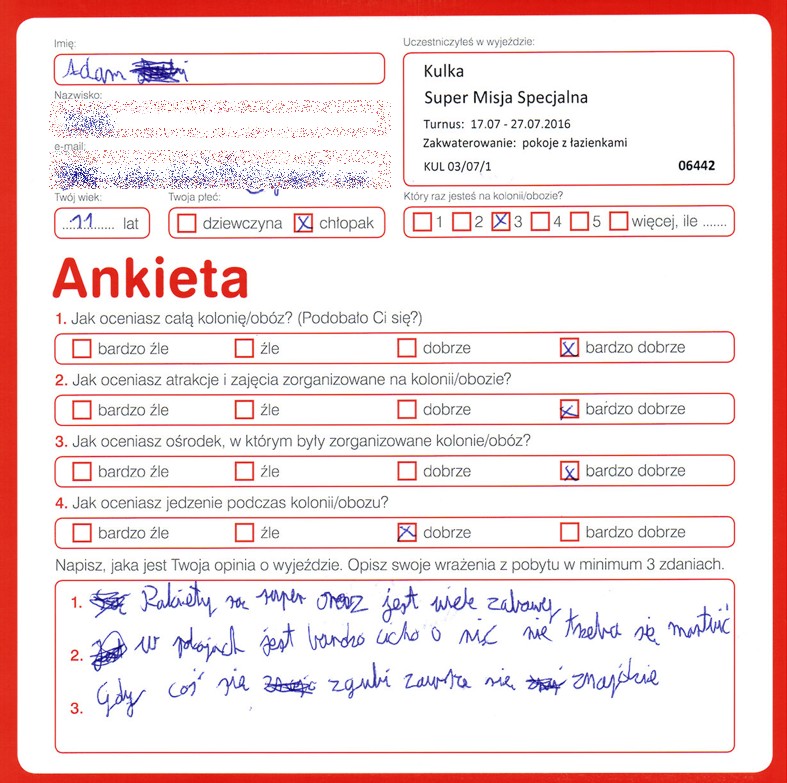 Imię:
Adam
Uczestniczyłeś w wyjeździe:
Kulka
Super Misja Specjalna
Turnus: 17.07 - 27.07.2016
Zakwaterowanie: pokoje z łazienkami
KUL 03/07/1 06442
Nazwisko:
e-mail:
Twój wiek:
11 lat
Twoja płeć:
dziewczyna chłopak
Który raz jesteś na kolonii/obozie?
1 2 3 4 5 więcej, ile .......
Ankieta
1. Jak oceniasz całą kolonię/obóz? (Podobało Ci się?)
bardzo źle źle dobrze bardzo dobrze
2. Jak oceniasz atrakcje i zajęcia zorganizowane na kolonii/obozie?
bardzo źle źle dobrze bardzo dobrze
3. Jak oceniasz ośrodek, w którym były zorganizowane kolonie/obóz?
bardzo źle źle dobrze bardzo dobrze
4. Jak oceniasz jedzenie podczas kolonii/obozu?
bardzo źle źle dobrze bardzo dobrze
Napisz, jaka jest Twoja opinia o wyjeździe. Opisz swoje wrażenia z pobytu w minimum 3 zdaniach.
1. Rakiety są super oraz jest wiele zabawy
2. w pokojach jest bardzo cicho o nic nie trzeba się martwić
3. Gdy coś się zgubi zawsze się znajdzie